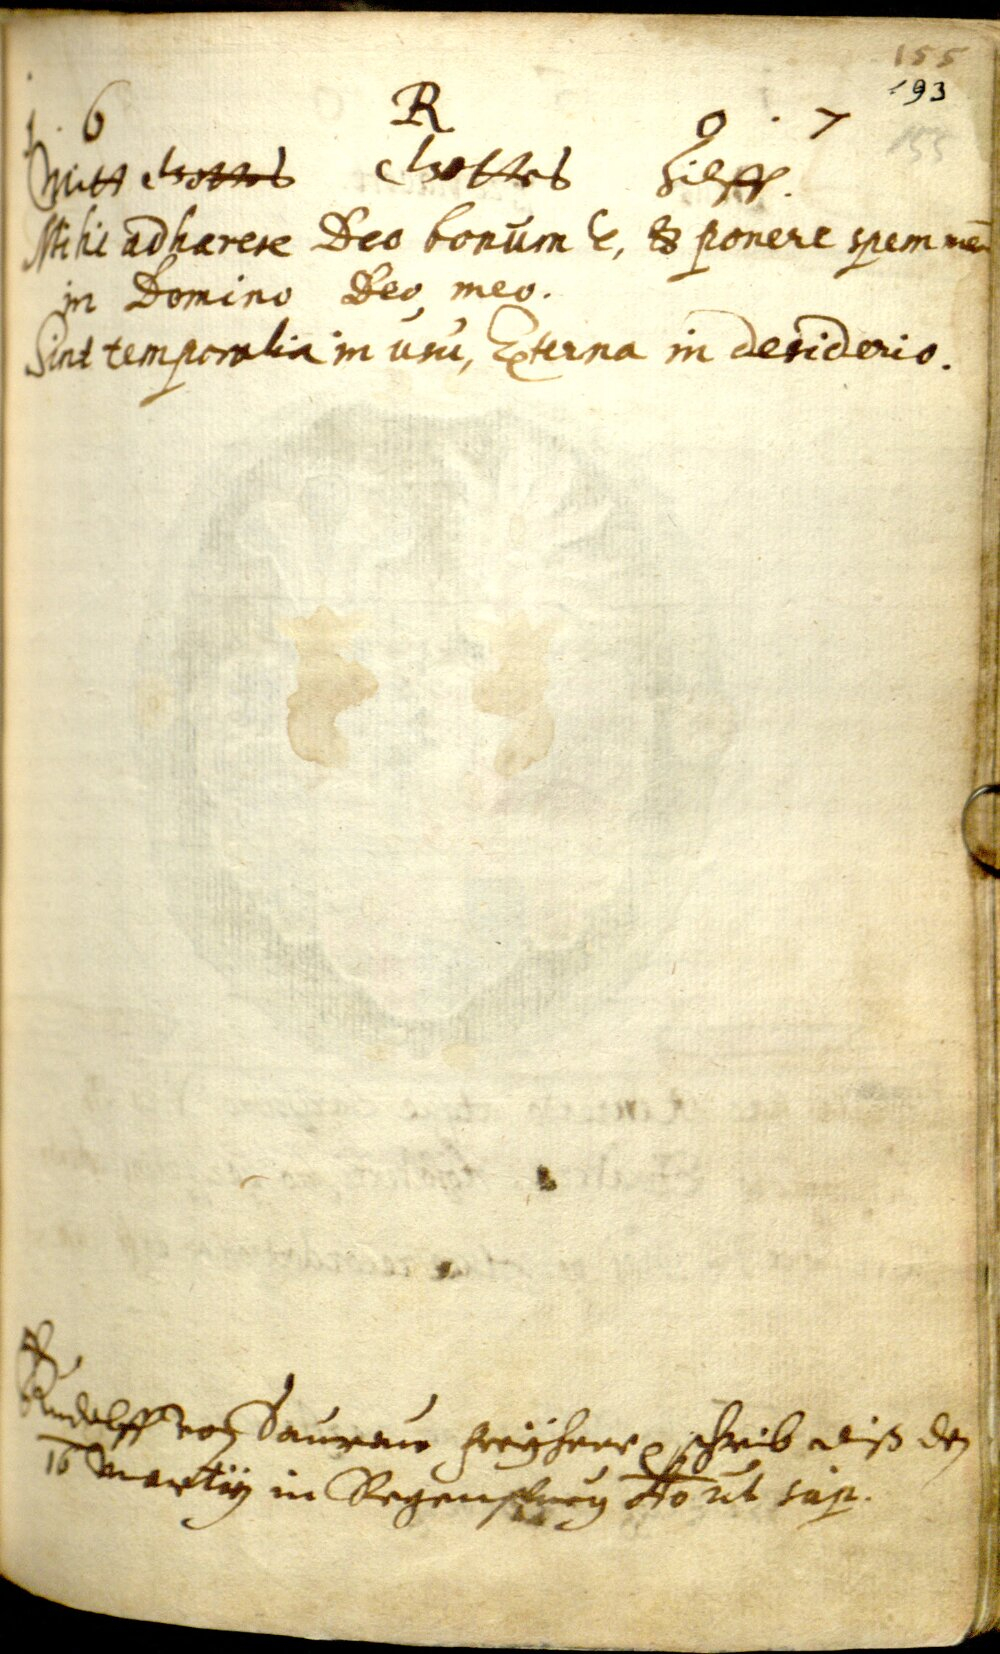 155
193
155
1 . 6 R 0 . 7
Mitt Gottes Gottes Hilff.
Mihi adhærere Deo bonum e, & ponere spem meā
in Domino Deo meo.
Sint temporalia in usu, Æterna in desiderio.
Rudolff von Saurau freÿherr schrib diß den
16 Martij in Regenspurg Ao ut sup.